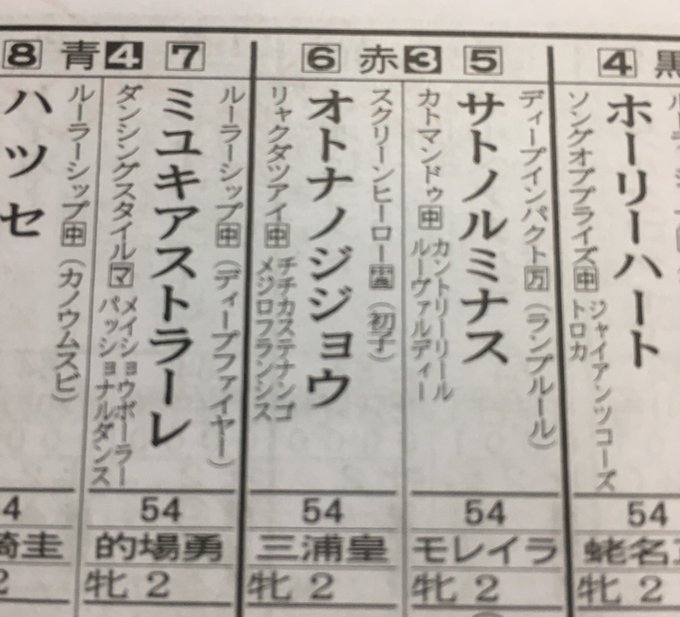 4 黒
ホーリーハート
ソングオブプライズ 中
ジャイアンツコーズ
トロカ
54
牝 2
5
3 赤
ディープインパクト 万 (ランプルール)
サトノルミナス
カトマンドゥ 中
カントリーリール
ルーヴァルディー
54
モレイラ
牝 2
6
スクリーンヒーロー (初子)
オトナノジジョウ
リャクダツアイ 中
チチカステナンゴ
メジロフランシス
54
三浦皇
牝 2
7
4 青
ルーラーシップ 中 (ディープファイヤー)
ミユキアストラーレ
ダンシングスタイル マ
メイショウボーラー
パッショナルダンス
54
的場勇
牝 2
8
ルーラーシップ 中 (カノウムスビ)
ハツセ
4
崎圭
2